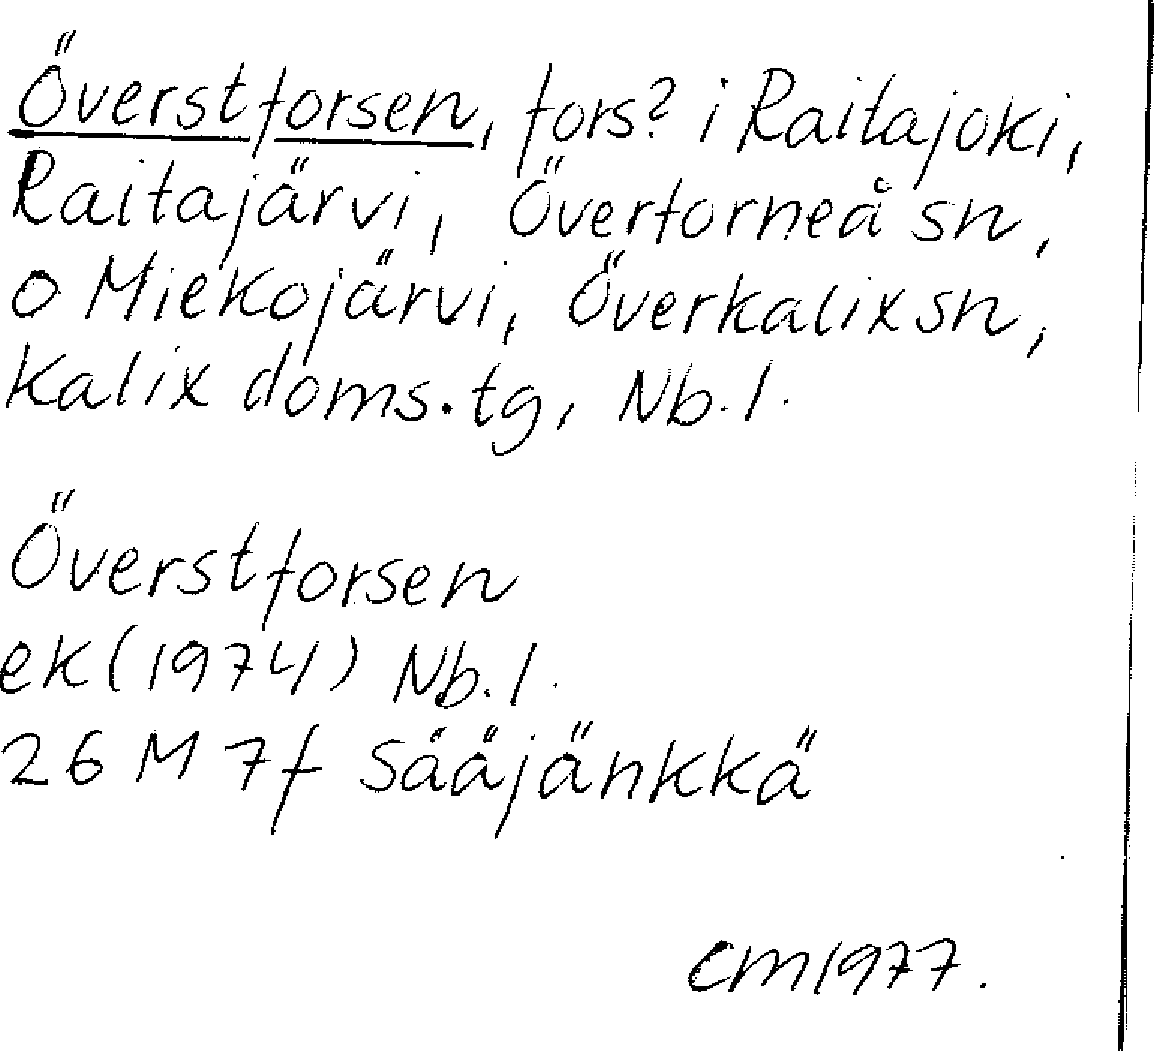 Överstforsen, fors? i Raitajoki,
Raitajärvi, Övertorneå sn,
o Miekojärvi, Överkalix sn,
Kalix doms.tg, Nb.l.
Överstforsen
ek (1974) Nb.l.
26 M 7f Sääjänkkä
CM 1977.